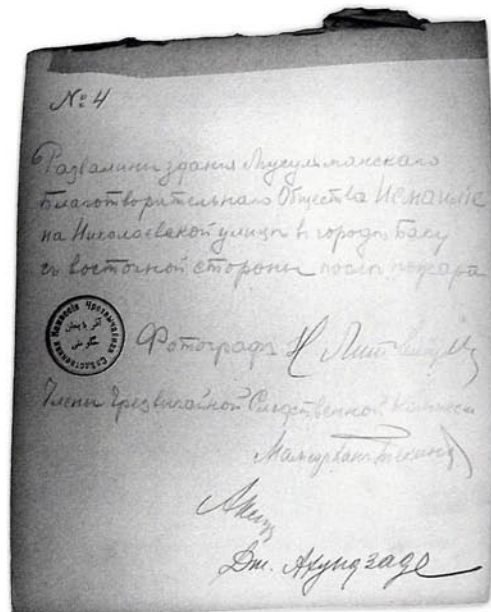 № 4
Развалины здания Мусульманскаго
Благотворительнаго Общества Исмаиліе
на Николаевской улицѣ в городѣ Баку
съ восточной стороны послѣ пожара
Чрезвычайная Слѣдственная Коммиссія
Фотографъ Н
Члены Чрезвычайной Слѣдственной Комиссіи
Дж. Ахундзаде